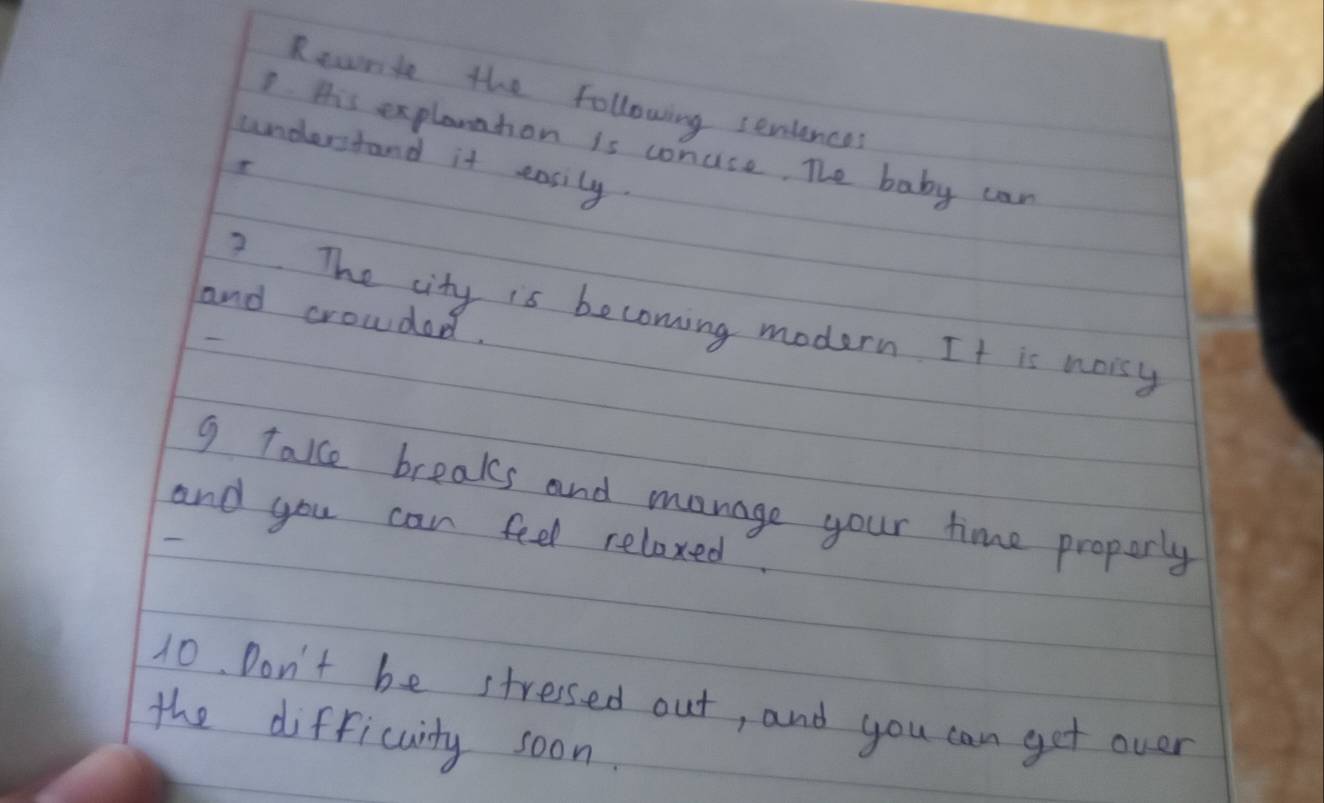 Rewrite the following sentences
8. His explanation is concise. The baby can
understand it easily.
-
7. The city is becoming modern. It is noisy
and crowded.
-
9 Take breaks and manage your time properly
and you can feel relaxed.
-
10. Don't be stressed out, and you can get over
the difficuity soon.